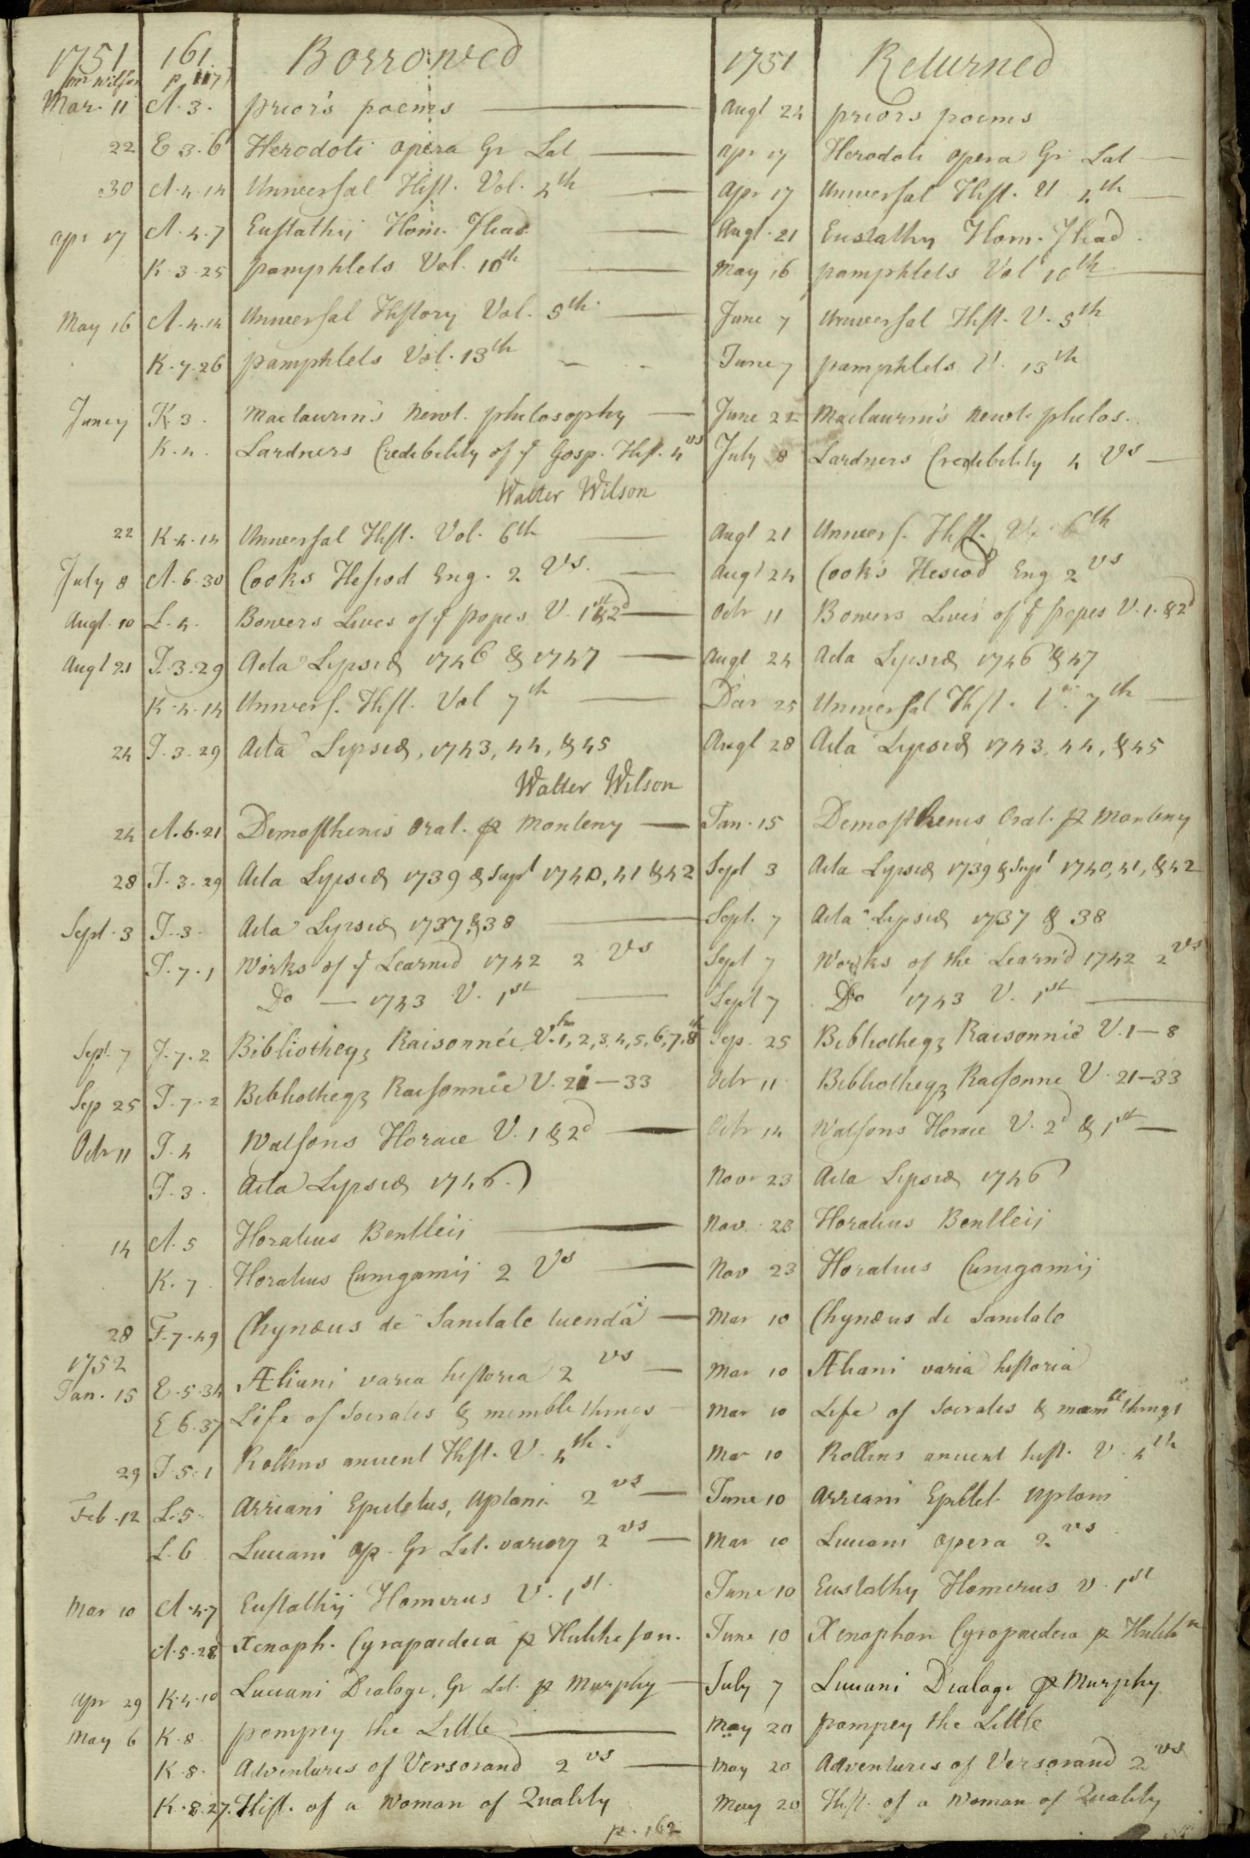 1751 161 Borrowed 1751 Returned
Mr Wilson p. 117
Mar. 11 A. 3. prior's poems Augt 24 priors poems
22 E 3. 6 Herodoti opera Gr Lat apr 17 Herodoti opera Gr Lat
30 A. 4. 14 Universal Hist. Vol. 4th apr 17 Universal Hist. V 4th
apr 17 A. 4. 7 Eustathij Hom. Iliad Augt. 21 Eustathy Hom. Iliad.
K. 3. 25 pamphlets Vol. 10th May 16 pamphlets Vol 10th
May 16 A. 4. 14 Universal History Vol. 5th June 7 Universal Hist. V. 5th
K. 7. 26 pamphlets Vol. 13th June 7 pamphlets V. 13th
June 7 K 3. Maclaurin's Newt. philosophy June 22 Maclaurin's Newt. philos.
K. 4. Lardners Credibility of ye Gosp. Hist. 4 vs July 8 Lardners Credibility 4 Vs
Walter Wilson
22 K. 4. 14 Universal Hist. Vol. 6th Augt 21 Univers. Hist. V. 6th
July 8 A. 6. 30 Cooks Hesiod Eng. 2 Vs. Augt 24 Cook's Hesiod Eng 2 vs
Augt. 10 L. 4. Bowers Lives of ye popes V. 1st & 2d Octr 11 Bowers Lives of ye popes V. 1. & 2d
Augt 21 I. 3. 29 Acta Lipsiæ 1746 & 1747 Augt 24 Acta Lipsiæ 1746 & 47
K. 4. 14 Univers. Hist. Vol 7th Decr 25 Universal Hist. V. 7th
24 I. 3. 29 Acta Lipsiæ, 1743, 44, & 45 Augt 28 Acta Lipsiæ 1743, 44, & 45
Walter Wilson
24 A. 6. 21 Demosthenis Orat. pr Monteny Jan. 15 Demosthenis Orat. pr Monteny
28 I. 3. 29 Acta Lipsiæ 1739 & Supt 1740, 41 & 42 Sept 3 Acta Lipsiæ 1739 & Supt 1740, 41, & 42
Sept. 3 I. 3. Acta Lipsiæ 1737, & 38 Sept. 7 Acta Lipsiæ 1737 & 38
I. 7. 1 Works of ye Learned 1742 2 Vs Sept 7 Works of the Learn'd 1742 2 vs
Do — 1743 V. 1st Sept 7 Do 1743 V. 1st
Sept. 7 I. 7. 2 Bibliotheq; Raisonnée V. 1, 2, 3, 4, 5, 6, 7, 8th Sep. 25 Bibliotheq; Raisonneé V. 1—8
Sep 25 I. 7. 2 Bibliotheq; Raisonnée V. 21—33 Octr 11 Bibliotheq; Raisonne V. 21—33
Octr 11 I. 4 Watsons Horace V. 1 & 2d Octr 14 Watsons Horace V. 2d & 1st
I. 3. Acta Lipsiæ 1746. Novr 23 Acta Lipsiæ 1746
14 A. 5 Horatius Bentleij Nov. 23 Horatius Bentleij
K. 7 Horatius Cunigamij 2 Vs Nov 23 Horatius Cunigamij
28 F. 7. 49 Chynæus de Sanitate tuenda Mar 10 Chynæus de Sanitate
1752
Jan. 15 E. 5. 34 Æliani varia historia 2 vs Mar 10 Æliani varia historia
E 6. 37 Life of Socrates & memble things Mar 10 Life of Socrates & memble things
29 I. 5. 1 Rollins ancient Hist. V. 4th. Mar 10 Rollins ancient hist. V. 4th
Feb. 12 L. 5. Arriani Epictetus, Uptoni 2 vs June 10 Arriani Epictet. Uptoni
L. 6 Luciani op. Gr Lat. varior; 2 vs Mar 10 Luciani opera 2 vs
Mar 10 A. 4. 7 Eustathij Homerus V. 1st. June 10 Eustathy Homerus v. 1st
A. 5. 28 Xenoph. Cyropaedeia pr Hutcheson. June 10 Xenophon Cyropaedeia pr Hutchn
apr 29 K. 4. 10 Luciani Dialogi, Gr Lat. pr Murphy July 7 Luciani Dialogi pr Murphy
May 6 K. 8 pompey the Little May 20 pompey the Little
K. 8. Adventures of Versorand 2 vs May 20 Adventures of Versorand 2 vs
K. 8. 27. Hist. of a Woman of Quality May 20 Hist. of a Woman of Quality
p. 162